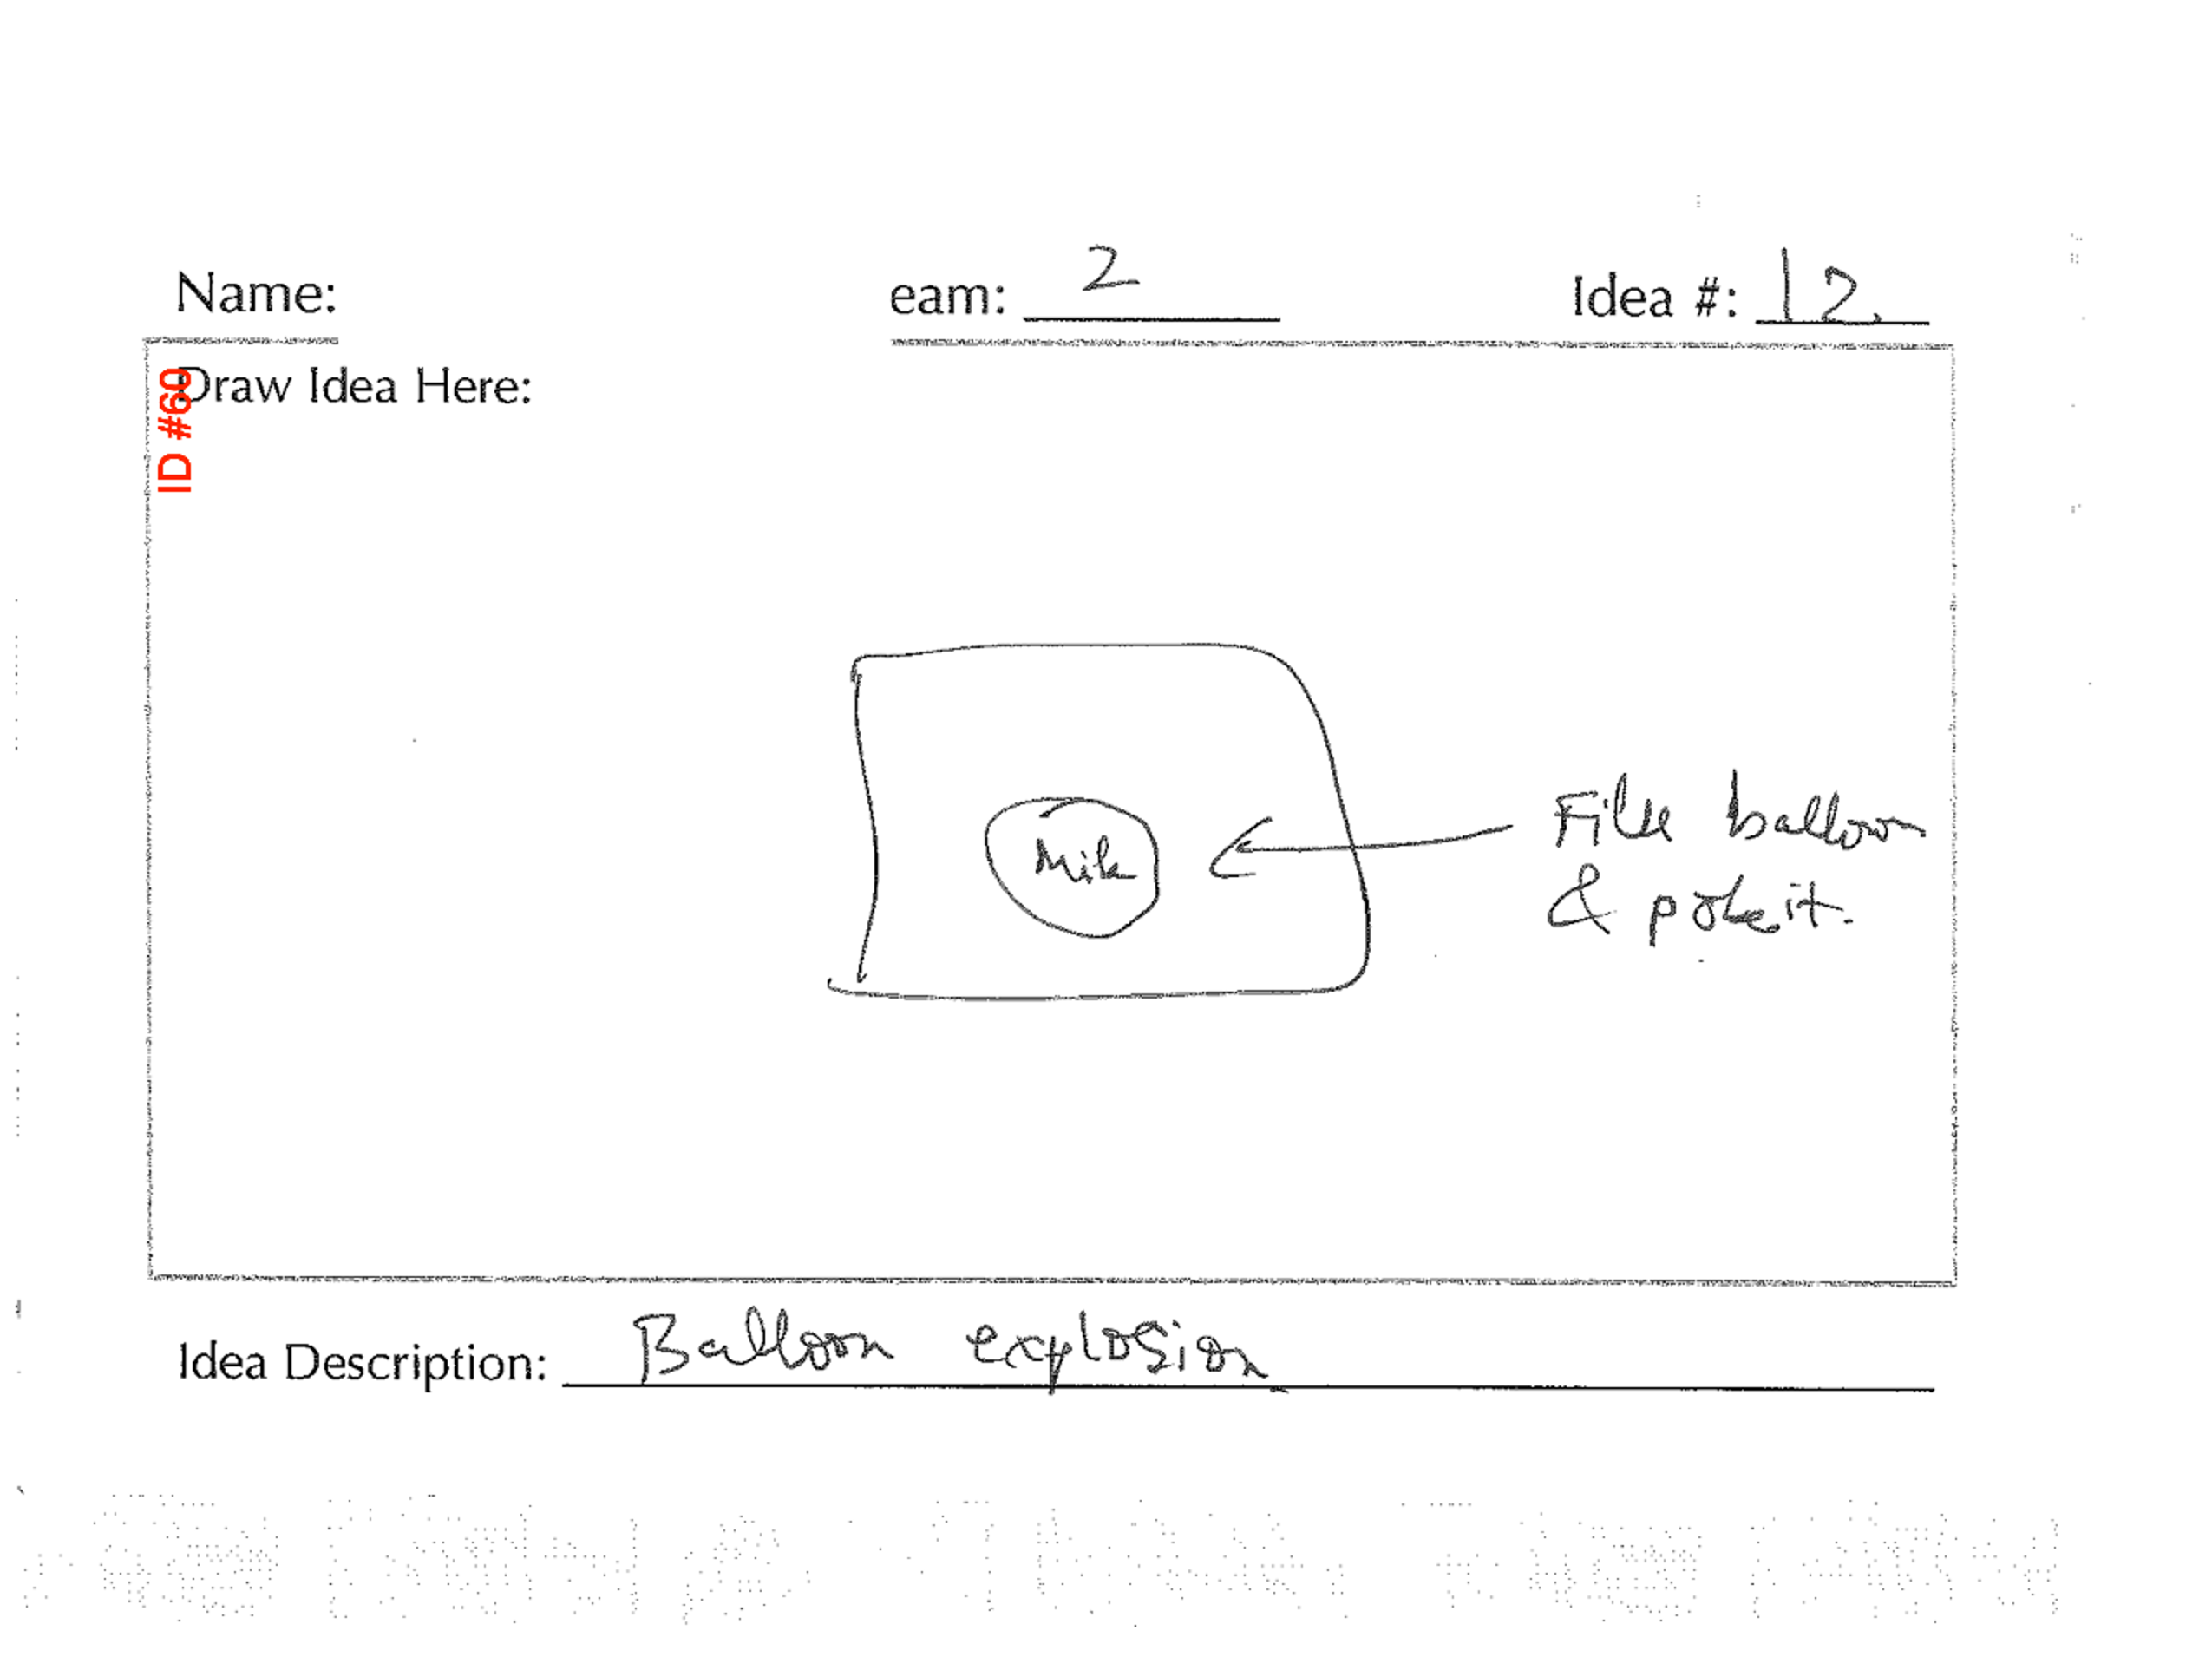 Name:
eam: 2
Idea #: 12.
ID #60
Draw Idea Here:
Milk
Fill balloon
& poke it.
Idea Description: Balloon explosion